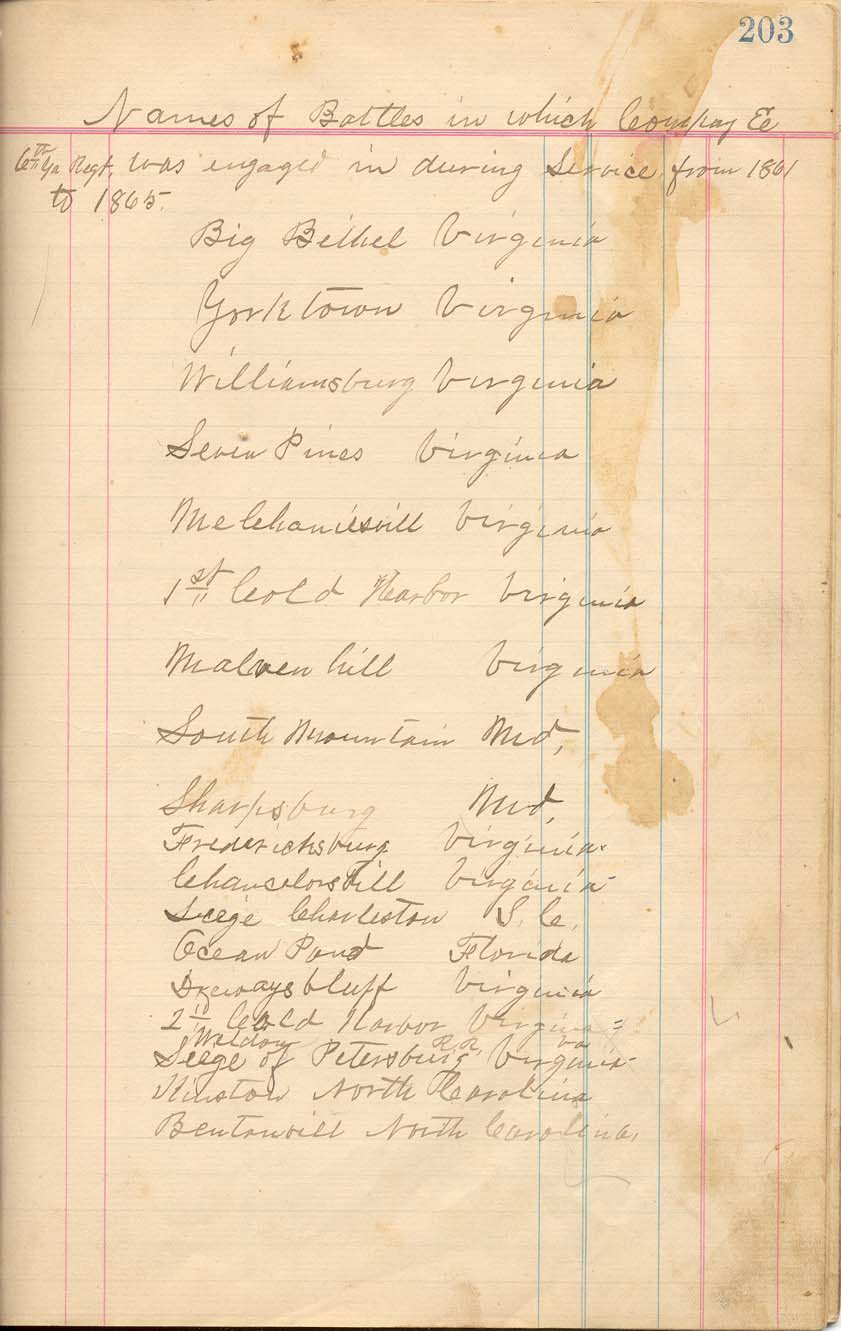 203
Names of Battles in which Company E
6th Ga Regt. was engaged in during Service from 1861
to 1865.
Big Bethel Virginia
Yorktown Virginia
Williamsburg Virginia
Seven Pines Virginia
Mechanicsvill Virginia
1st Cold Harbor Virginia
Malven hill Virginia
South Mountain Md,
Sharpsburg Md,
Fredericksburg Virginia.
Chancelorsvill Virginia
Siege Charleston S. C.
Ocean Pond Florida
Drewaysbluff Virginia
2nd Cold Harbor Virginia
Weldon R. R. Va
Seige of Petersburg Virginia
Kinston North Carolina
Bentonvill North Carolina,